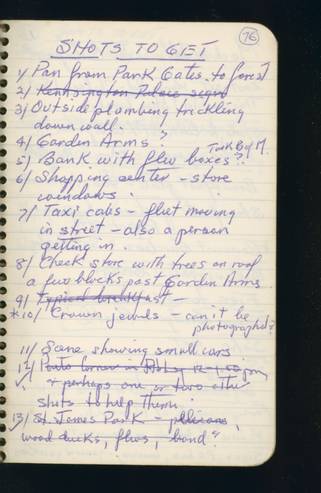 76
SHOTS TO GET
1/ Pan from Park Gates to forest
2/ Kensington Palace signs
3/ Outside plumbing trickling
down wall.
4/ Garden Arms?
5/ Bank with flw boxes?
6/ Shopping center - store
windows.
7/ Taxi cabs - flut moving
in street - also a person
getting in.
8/ Check store with trees on roof
a few blocks past Garden Arms
9/ Typical breakfast -
*10/ Crown jewels - can't be
photographed?
11/ Scene showing small cars
12/ corner in 12-1:00 pm
& perhaps one or two other
shots to help them.
13/ St. James Park - pelicans,
wood ducks, flws, band?